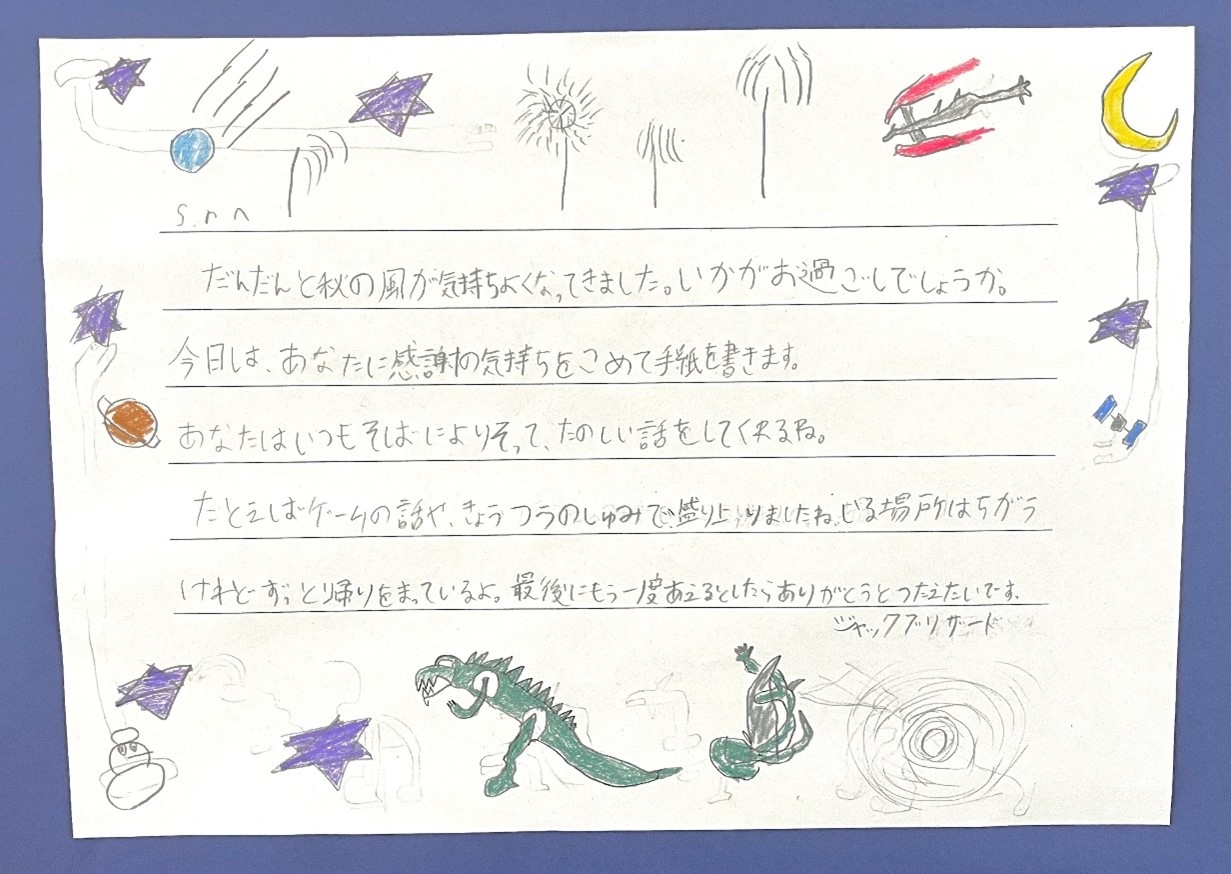 s.r.n へ
だんだんと秋の風が気持ちよくなってきました。いかがお過ごしでしょうか。
今日しは、あなたに感謝の気持ちをこめて手紙を書きます。
あなたはいつもそばによりそって、たのしい話をしてくれるね。
たとえばゲームの話や、きょうつうのしゅみで盛り上りましたね。いる場所はちがう
けれどずっとり帰りをまっているよ。最後にもう一度あえるとしたらありがとうとつたえたいです。
ジャックブリザード